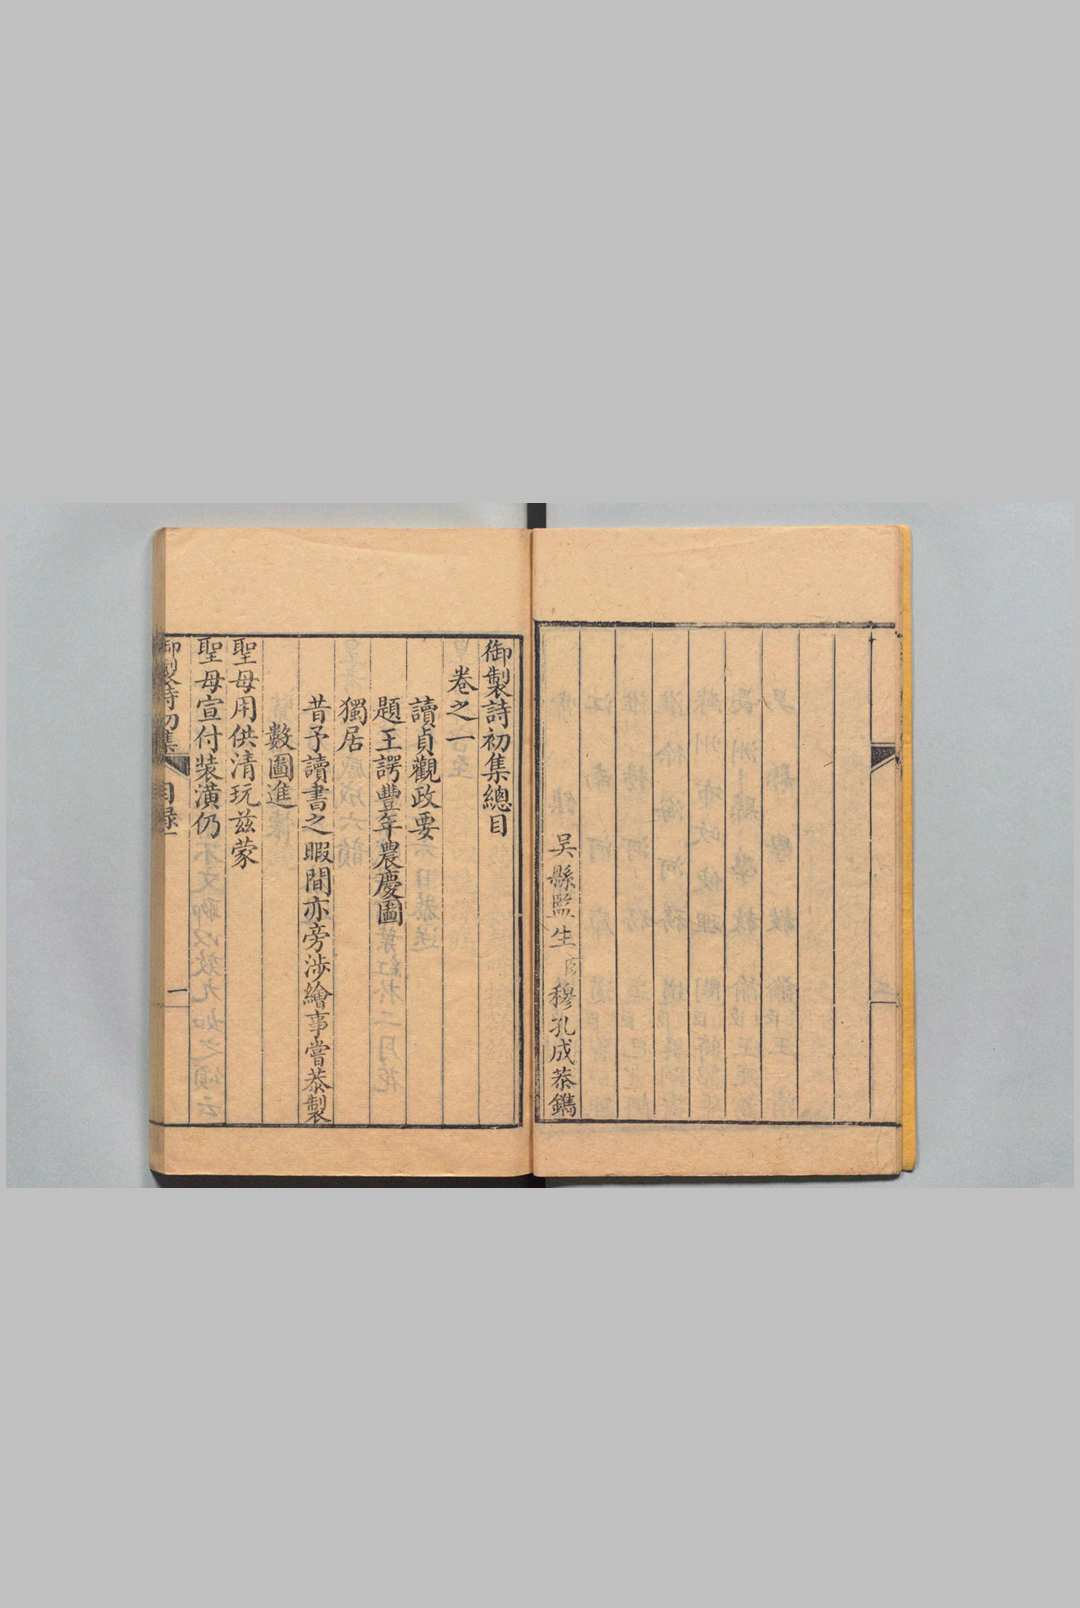 吳縣監生臣穆孔成恭鐫
御製詩初集總目
卷之一
讀貞觀政要
題王諤豐年農慶圖
獨居
昔予讀書之暇間亦旁涉繪事嘗恭製
數圖進
聖母用供清玩茲蒙
聖母宣付裝潢仍
御製詩初集 目錄一 一